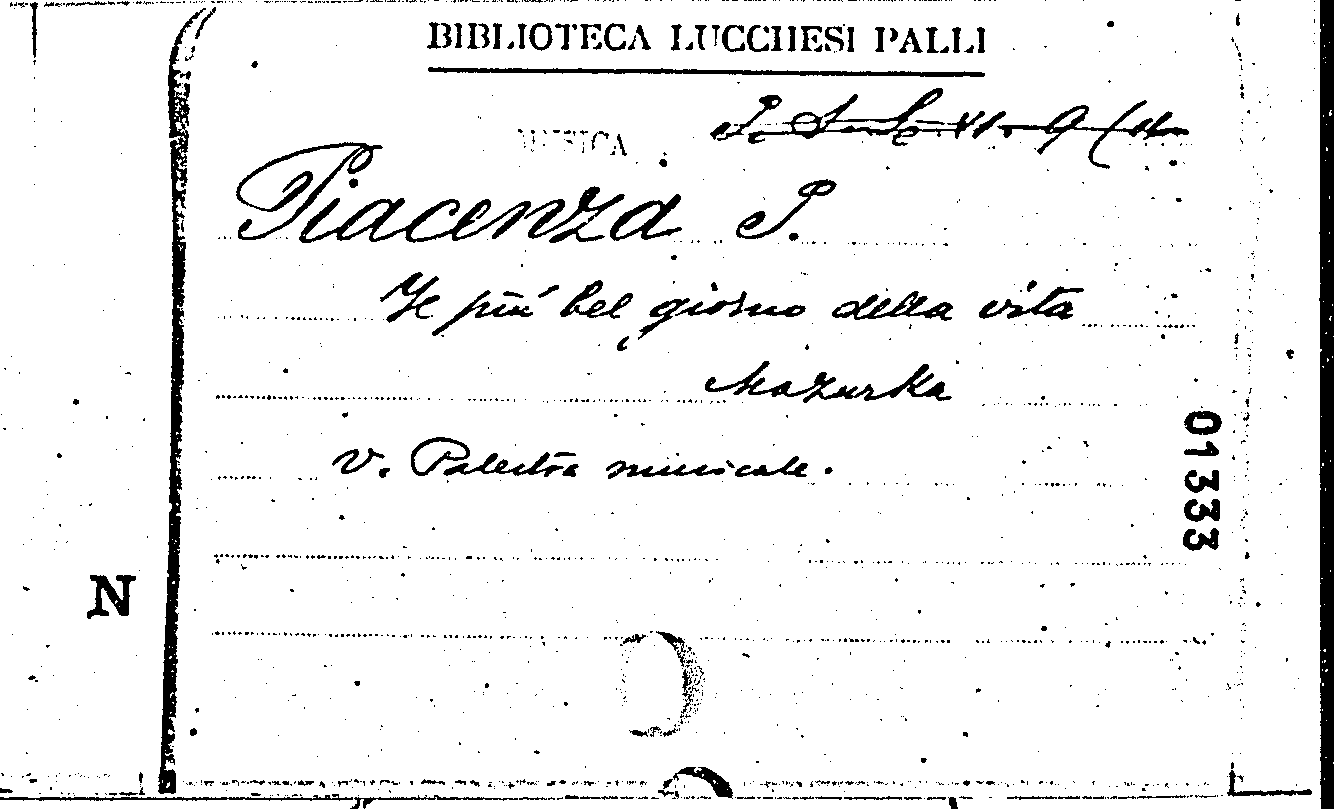 BIBLIOTECA LUCCHESI PALLI
MUSICA
Piacenza P.
Il più bel giorno della vita
Mazurka
v. Palestra musicale.
01333
N